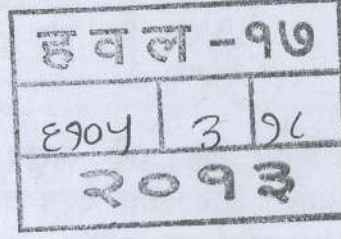 हवल-१७
६१०५ ३ १८
२०१३